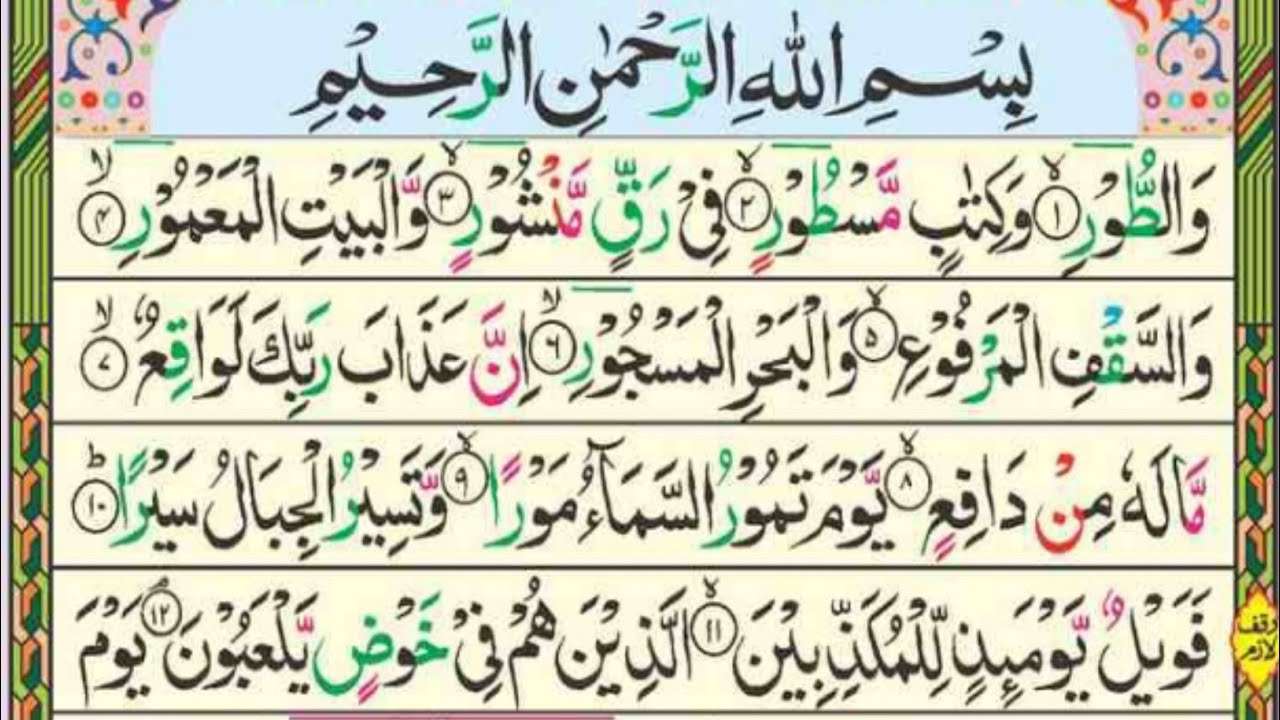 بِسْمِ اللّٰهِ الرَّحْمٰنِ الرَّحِيْمِ
وَالطُّوْرِ ۙ﴿۱﴾ وَكِتٰبٍ مَّسْطُوْرٍ ۙ﴿۲﴾ فِيْ رَقٍّ مَّنْشُوْرٍ ۙ﴿۳﴾ وَّالْبَيْتِ الْمَعْمُوْرِ ۙ﴿۴﴾
وَالسَّقْفِ الْمَرْفُوْعِ ۙ﴿۵﴾ وَالْبَحْرِ الْمَسْجُوْرِ ۙ﴿۶﴾ اِنَّ عَذَابَ رَبِّكَ لَوَاقِعٌ ۙ﴿۷﴾
مَّا لَهٗ مِنْ دَافِعٍ ۙ﴿۸﴾ يَّوْمَ تَمُوْرُ السَّمَآءُ مَوْرًا ۙ﴿۹﴾ وَّتَسِيْرُ الْجِبَالُ سَيْرًا ؕ﴿۱۰﴾
فَوَيْلٌ يَّوْمَىِٕذٍ لِّلْمُكَذِّبِيْنَ ۙ﴿۱۱﴾ الَّذِيْنَ هُمْ فِيْ خَوْضٍ يَّلْعَبُوْنَ ۘ﴿۱۲﴾ يَوْمَ
وقف لازم